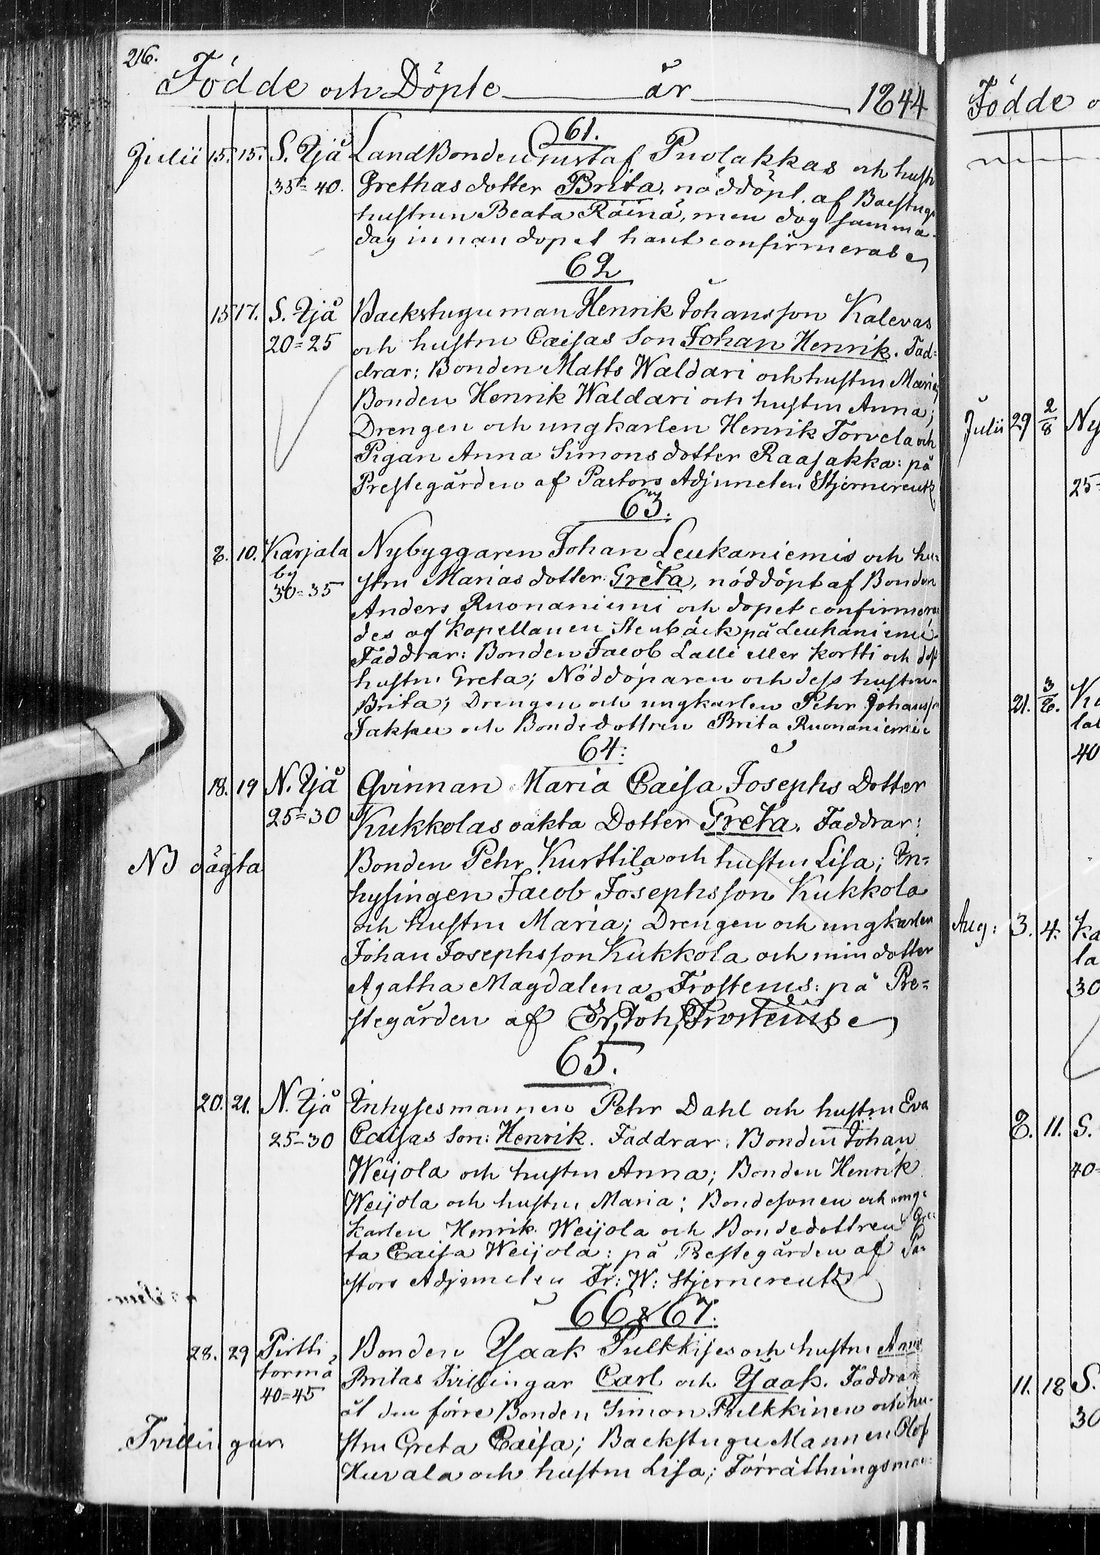 216.
Födde och Döpte år 1844
61.
Julii 15. 15. S. Ijå Landbonden Gustaf Puolakkas och hustr
35=40. Grethas dotter Brita, nöddöpt. af Backstugu
hustrun Beata Räinä, men dog samma
dag innan dopet hant confirmeras
62
15 17. S. Ijå Backstuguman Henrik Johansson Kalevas
20=25 och hustru Caisas Son Johan Henrik. Fad=
drar: Bonden Matts Waldari och hustru Maria,
Bonden Henrik Waldari och hustru Anna;
Drengen och ungkarlen Henrik Torvela och
Pigan Anna Simons dotter Raasakka: på
Prestegården af Pastors Adjuncten Stjernereutz
63.
8. 10. Karjala Nybyggaren Johan Leukaniemis och hu=
by stru Marias dotter Greta, nöddöpt af Bonden
30=35 Anders Ruonaniemi och dopet confirmera
des af Kapellanen Stenbäck på Leukaniemi.
Faddrar: Bonden Jacob Lalli eller Kortti och dess
hustru Greta; Nöddöparen och dess hustru
Brita; Drengen och ungkarlen Pehr Johansson
Jakku och Bondedottren Brita Ruonaniemi
64:
18. 19 N. Ijå Qvinnan Maria Caisa Josephs Dotter
25=30 Kukkolas oäkta Dotter Greta. Faddrar:
NB oägta Bonden Pehr Kurttila och hustru Lisa; In=
hysingen Jacob Josephsson Kukkola
och hustru Maria; Drengen och ungkarlen
Johan Josephsson Kukkola och min dotter
Agatha Magdalena Frosterus: på Pre=
stegården af Joh, Frosterus
65.
20. 21. N. Ijå Inhysesmannen Pehr Dahl och hustru Eva
25-30 Caisas Son: Henrik. Faddrar: Bonden Johan
Weijola och hustru Anna; Bonden Henrik
Weijola och hustru Maria; Bondesonen och ung=
karlen Henrik Weijola och Bondedottren Gre=
ta Caisa Weijola: på Prestegården af Pa=
stors Adjuncten Fr: W: Stjernereutz
66 & 67.
28. 29 Pirtti Bonden Ysaak Pulkkises och hustru Anna
tormä Britas Tvillingar Carl och Ysaak. Faddrar
40=45 åt den förre Bonden Simon Pulkkinen och hu=
Tvillingar stru Greta Caisa; Backstugu Mannen Olof
Huvala och hustru Lisa; Förrättningsman
Födde o
Julii 29 2/8 Ny
25=
21. 3/8. Ka
40
Aug: 3. 4. Ka
la
30
8. 11. S.
40=
11. 18 S.
30